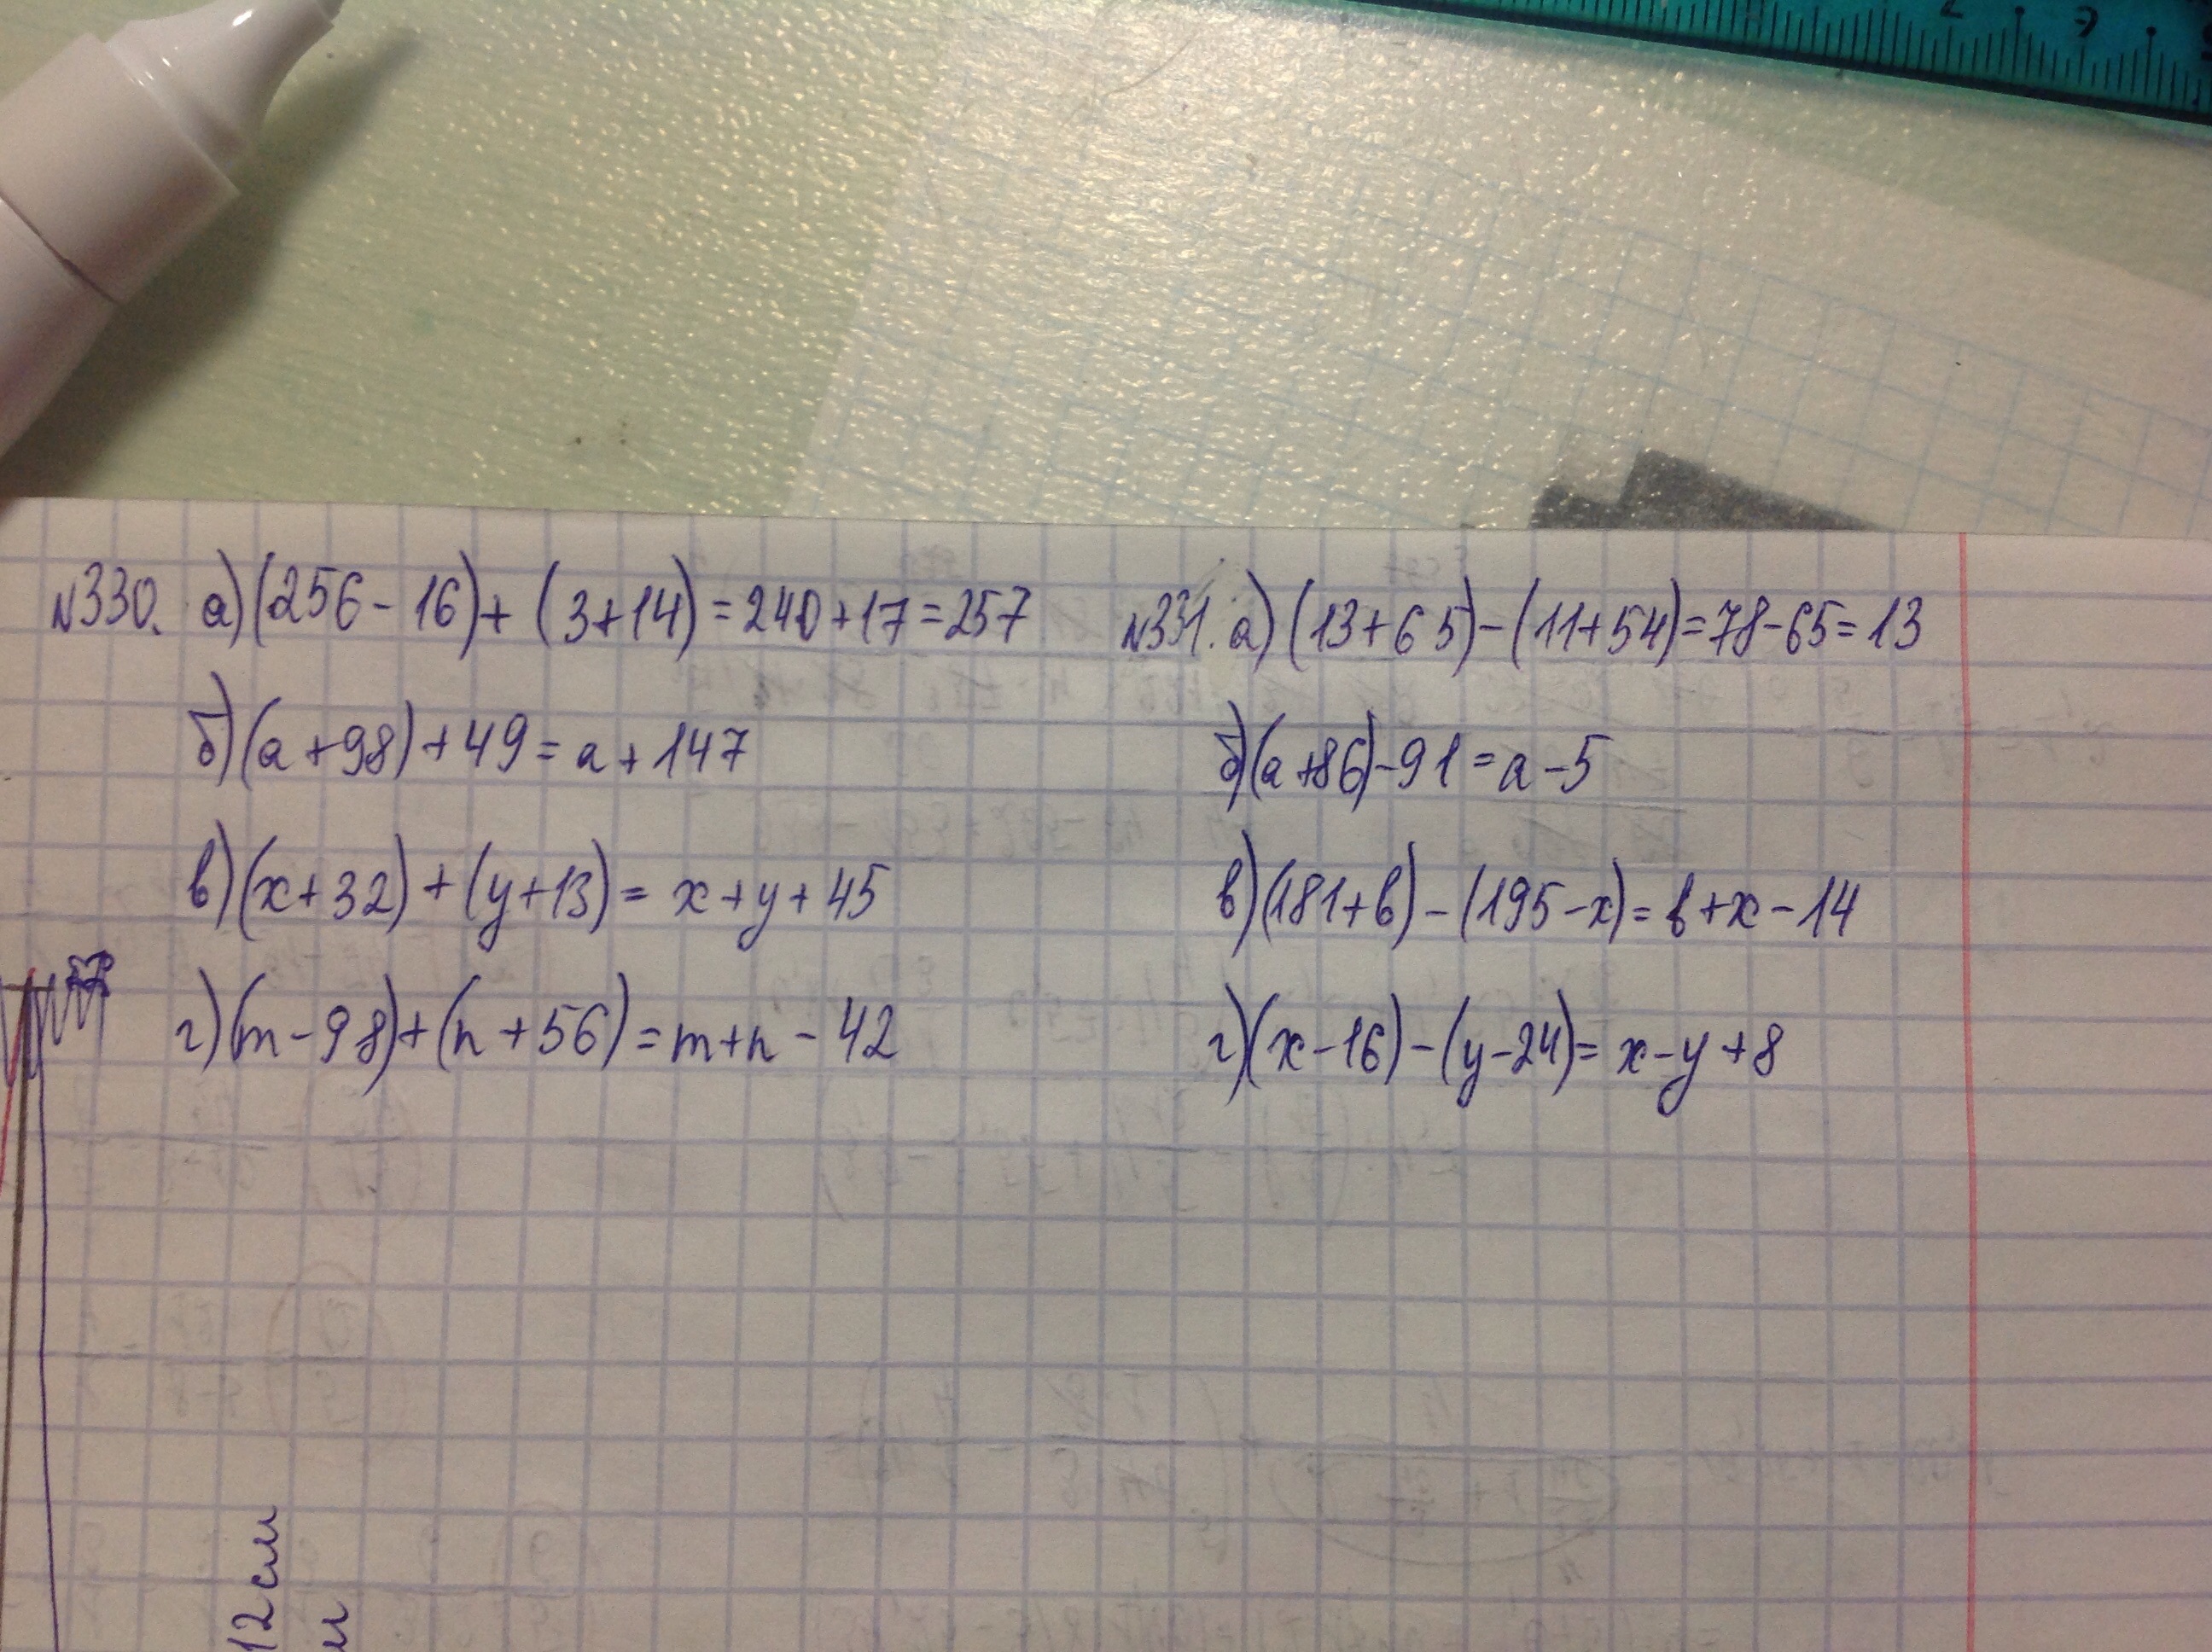 №330. а) (256 - 16) + (3+14) = 240 + 17 = 257
б) (a + 98) + 49 = a + 147
в) (x + 32) + (y + 13) = x + y + 45
г) (m - 98) + (n + 56) = m + n - 42
№331. а) (13 + 65) - (11 + 54) = 78 - 65 = 13
б) (a + 86) - 91 = a - 5
в) (181 + b) - (195 - x) = b + x - 14
г) (x - 16) - (y - 24) = x - y + 8
12 см